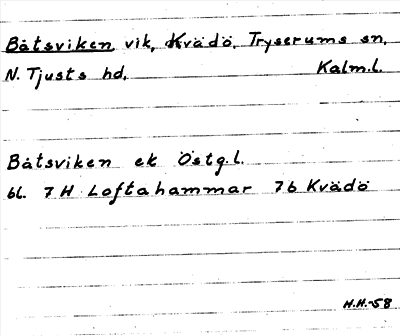 Båtsviken, vik, Kvädö, Tryserums sn,
N. Tjusts hd, Kalm.l.
Båtsviken ek Östg.l.
bl. 7 H Loftahammar 76 Kvädö
H.H.-58